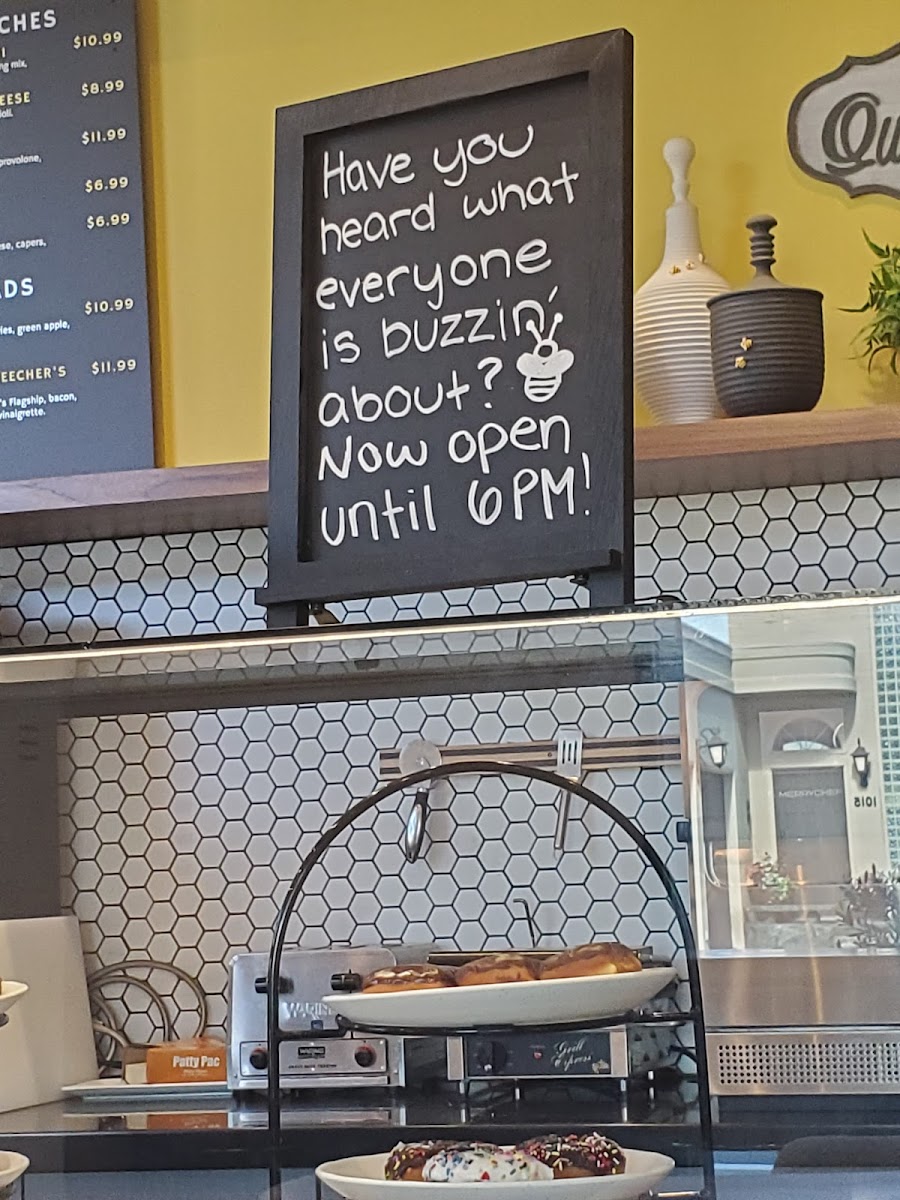 CHES
$10.99
ng mix,
EESE
$8.99
$11.99
provolone,
$6.99
$6.99
se, capers,
DS
$10.99
ies, green apple,
EECHER'S
$11.99
's Flagship, bacon,
vinaigrette.
Have you
heard what
everyone
is buzzin'
about?
Now open
until 6PM!
Qu
MERRYCHEF
1015
WARING
Patty Pac
WARING
Grill
Express